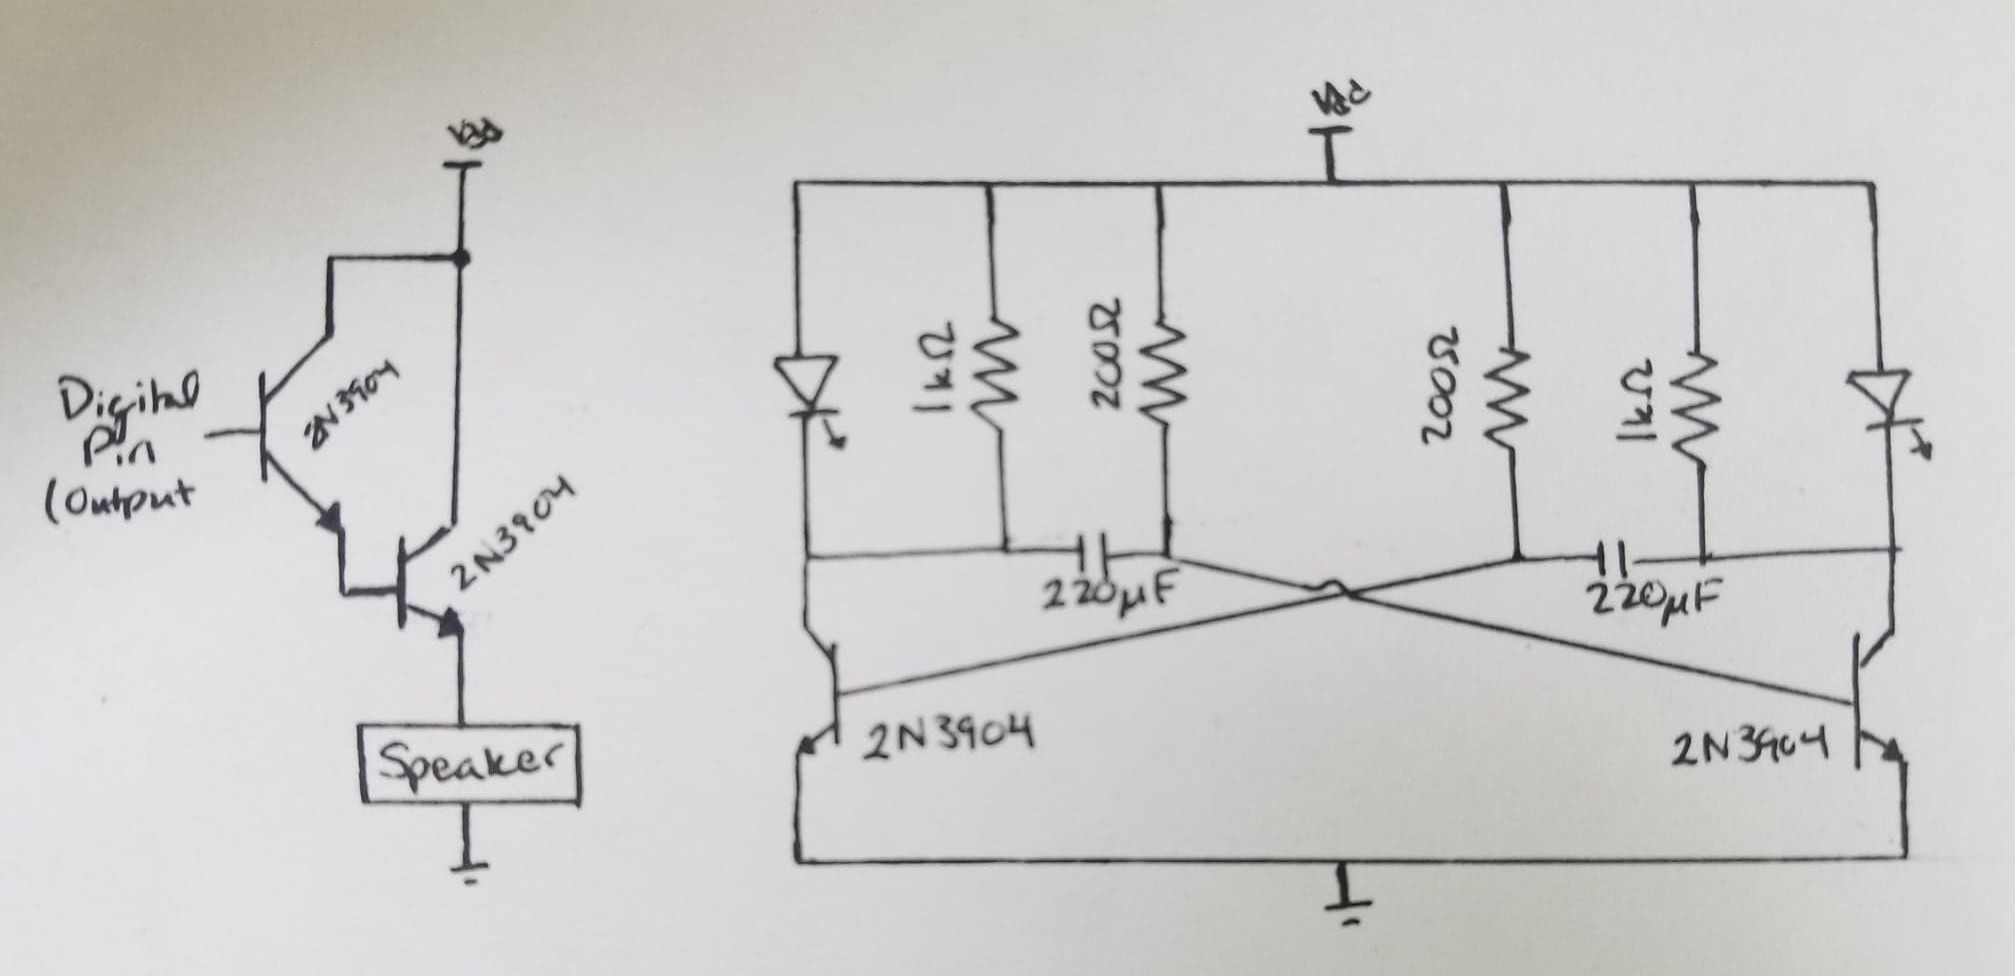 Digital
Pin
(Output
2N3904
2N3904
Speaker
1kΩ
200Ω
200Ω
1kΩ
220µF
220µF
2N3904
2N3904